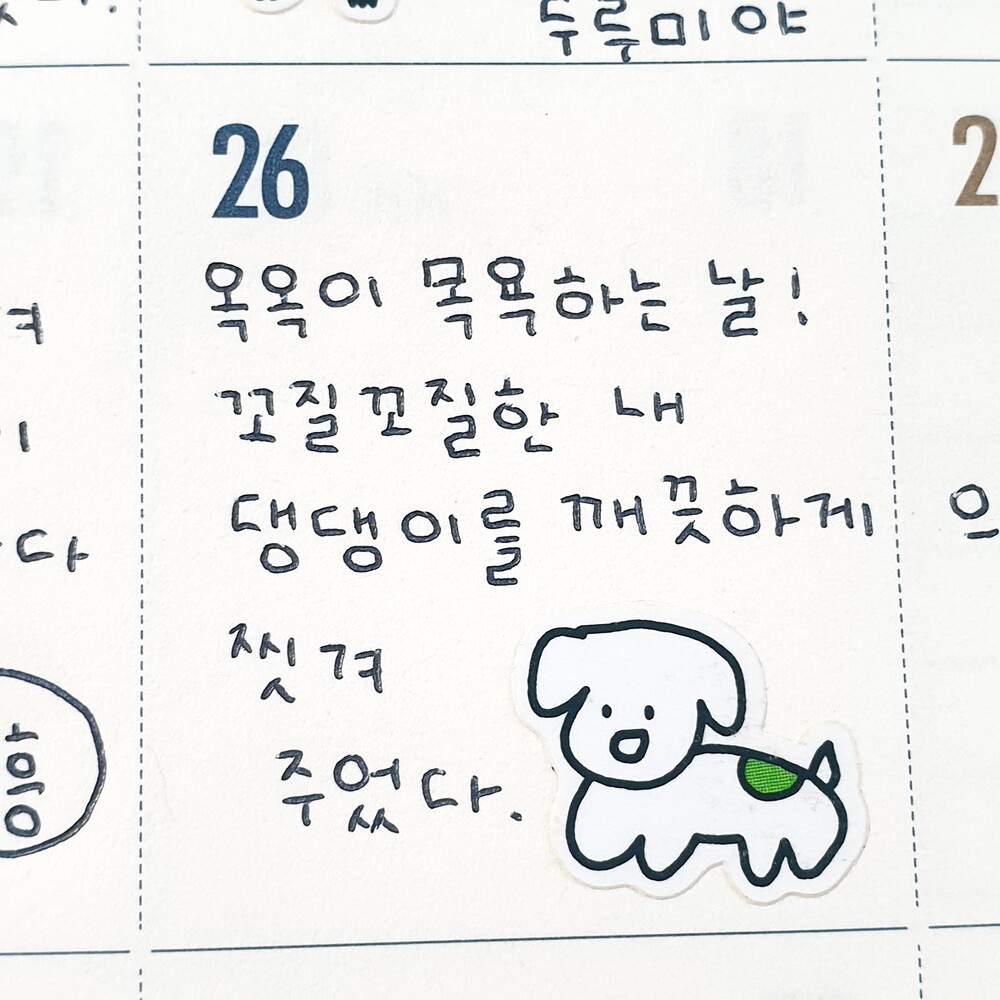 두루미야
26
옥옥이 목욕하는 날!
꼬질꼬질한 내
댕댕이를 깨끗하게
씻겨
주었다.
다
이야